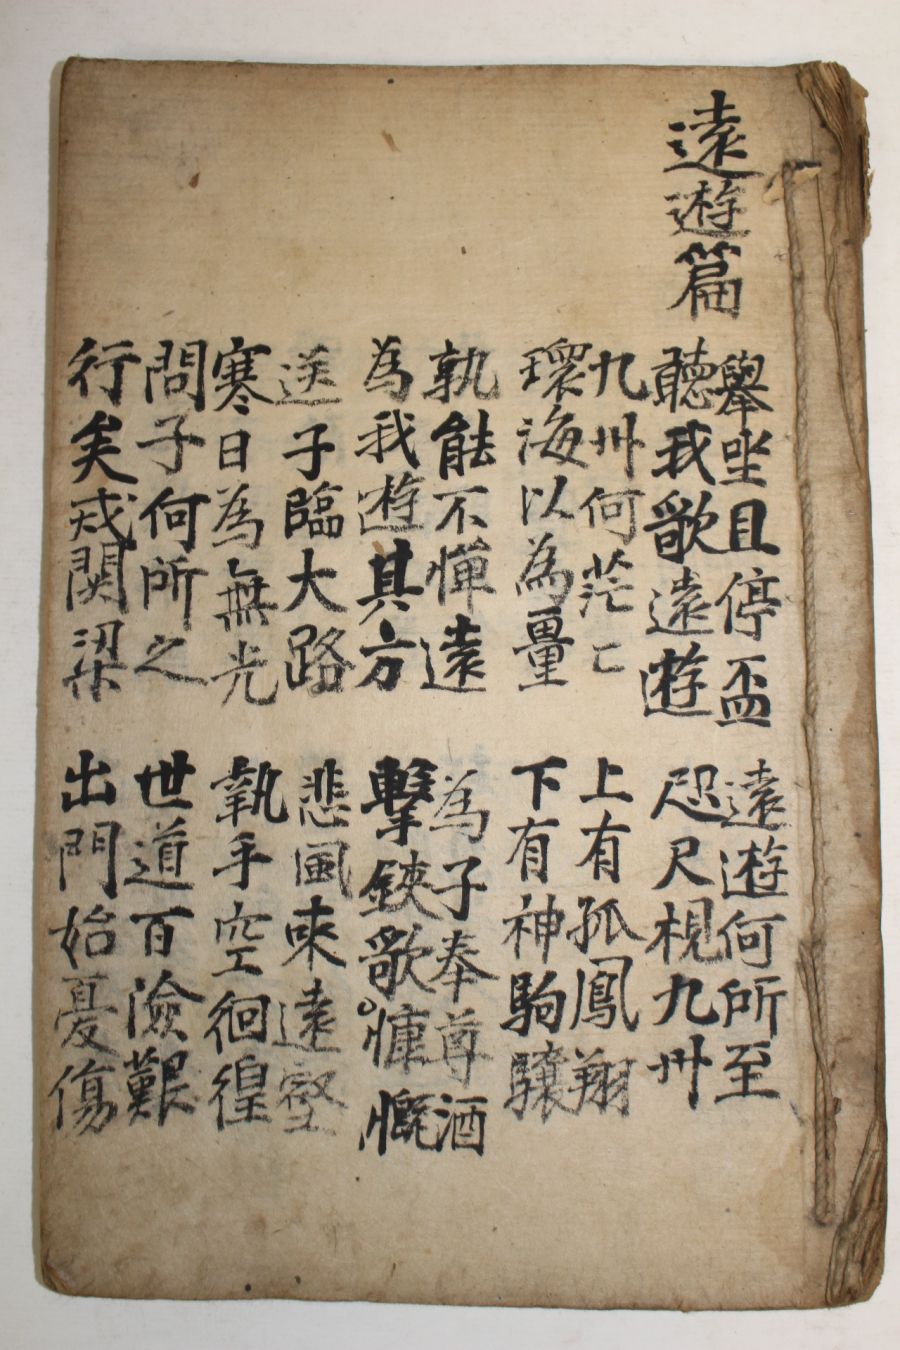 遠遊篇
擧坐且停盃
聽我歌遠遊
遠遊何所至
咫尺視九州
九州何茫〻
環海以為量
上有孤鳳翔
下有神駒驤
孰能不憚遠
為我遊其方
為子奉尊酒
擊鋏歌慷慨
送子臨大路
寒日為無光
悲風来遠壑
執手空徊徨
問子何所之
行矣戒関梁
世道百險艱
出門始憂傷